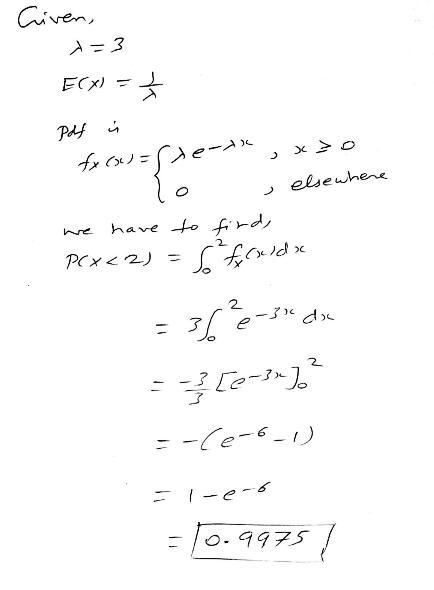 Given,
λ = 3
E(X) = 1/λ
Pdf is
fx(x) = { λe^-λx , x ≥ 0
0 , elsewhere
we have to find,
P(X < 2) = ∫₀² fx(x)dx
= 3∫₀² e^-3x dx
= -3/3 [e^-3x]₀²
= -(e^-6 - 1)
= 1 - e^-6
= 0.9975